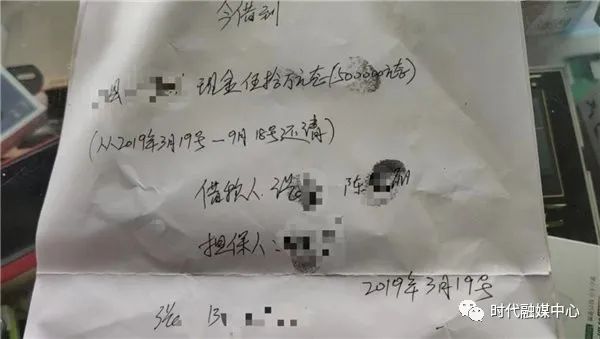 今借到
现金伍拾万元整(500000元整)
(从2019年3月19号—9月18号还清)
借款人:张 陈 丽
担保人:
2019年3月19号
张
时代融媒中心